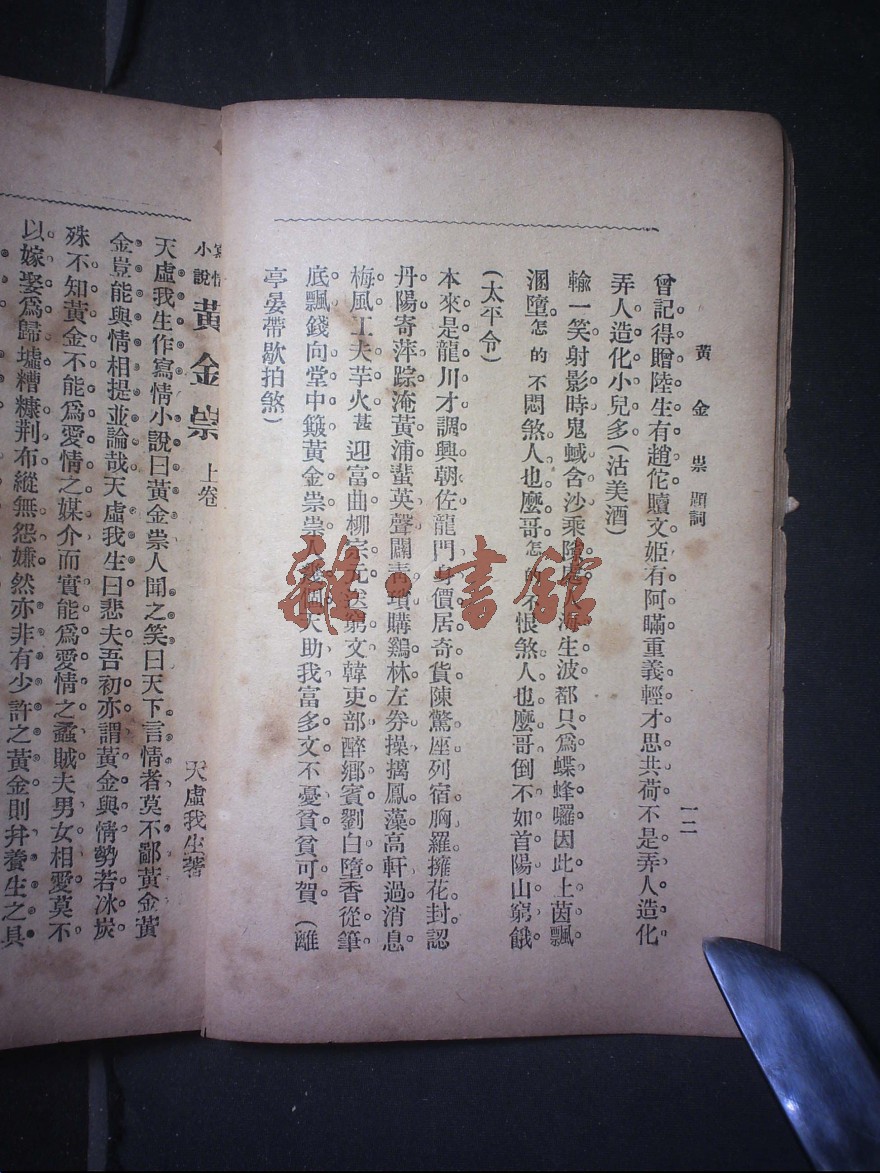 黃金祟 題詞
一二
曾記得贈陸生有趙佗贖文姬有阿瞞重義輕才思共荷不是弄人造化
弄人造化小兒多(沽美酒)
輸一笑射影時鬼蜮含沙乘 海生波都只爲蝶蜂囉因此上茵飄
溷墮怎的不悶煞人也麼哥怎的不恨煞人也麼哥倒不如首陽山窮餓
(太平令)
本來是龍川才調興朝佐龍門身價居奇貨陳驚座列宿胸羅擁花封認
丹陽寄萍踪淹黃浦蜚英聲闢靑瑣購鷄林左券操摛鳳藻高軒過消息
梅風工夫芋火甚迎富曲柳宗元送窮文韓吏部醉鄉賓劉白墮香從筆
底飄錢向堂中簸黃金祟祟人幾個天助我富多文不憂貧貧可賀(離
亭宴帶歇拍煞)
寫情小說 黃金祟 上卷
天虛我生著
天虛我生作寫情小說曰黃金祟人聞之笑曰天下言情者莫不鄙黃金黃
金豈能與情相提並論哉天虛我生曰悲夫吾初亦謂黃金與情勢若冰炭
殊不知黃金不能爲愛情之媒介而實能爲愛情之蟊賊夫男女相愛莫不
以嫁娶爲歸墟糟糠荆布縱無怨嫌然亦非有少許之黃金則幷養生之具
雜·書館